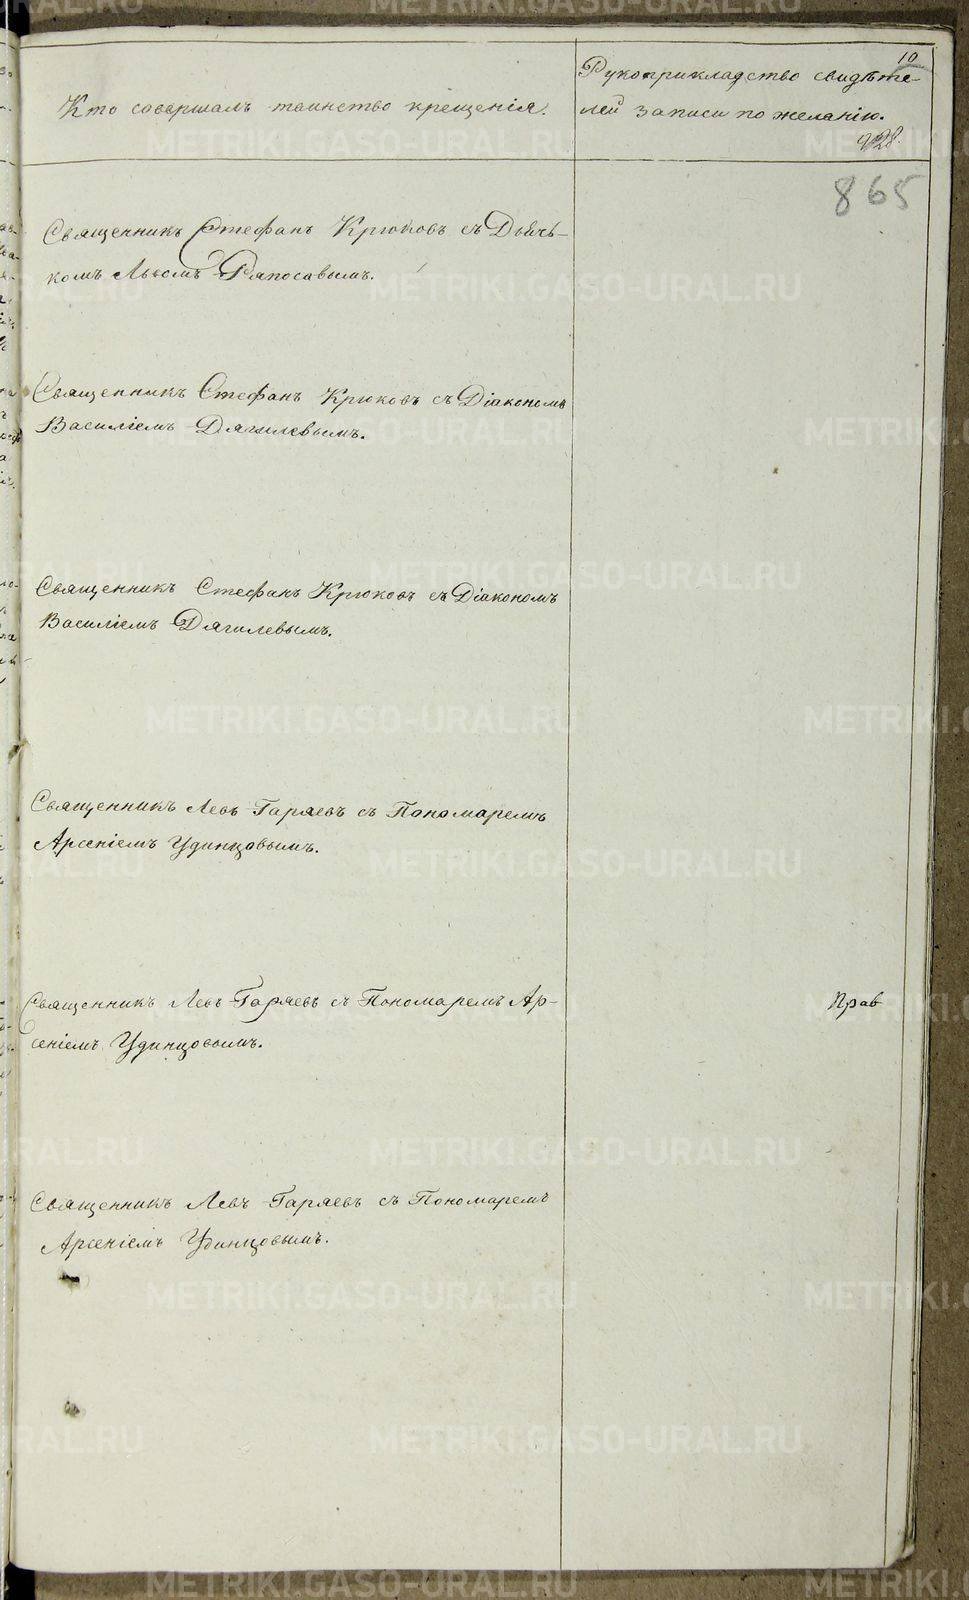 10
Кто совершалъ таинство крещенія.
Рукоприкладство свидѣте-
лей записи по желанію.
928.
865
Священникъ Стефанъ Крюковъ съ Дьячь-
комъ Львомъ
Священникъ Стефанъ Крюковъ съ Діакономъ
Василіемъ Дягилевымъ.
Священникъ Стефанъ Крюковъ съ Діакономъ
Василіемъ Дягилевымъ.
Священникъ Левъ Гаряевъ съ Пономаремъ
Арсеніемъ Удинцовымъ.
Священникъ Левъ Гаряевъ съ Пономаремъ Ар-
сеніемъ Удинцовымъ.
Прав
Священникъ Левъ Гаряевъ съ Пономаремъ
Арсеніемъ Удинцовымъ.
METRIKI.GASO-URAL.RU